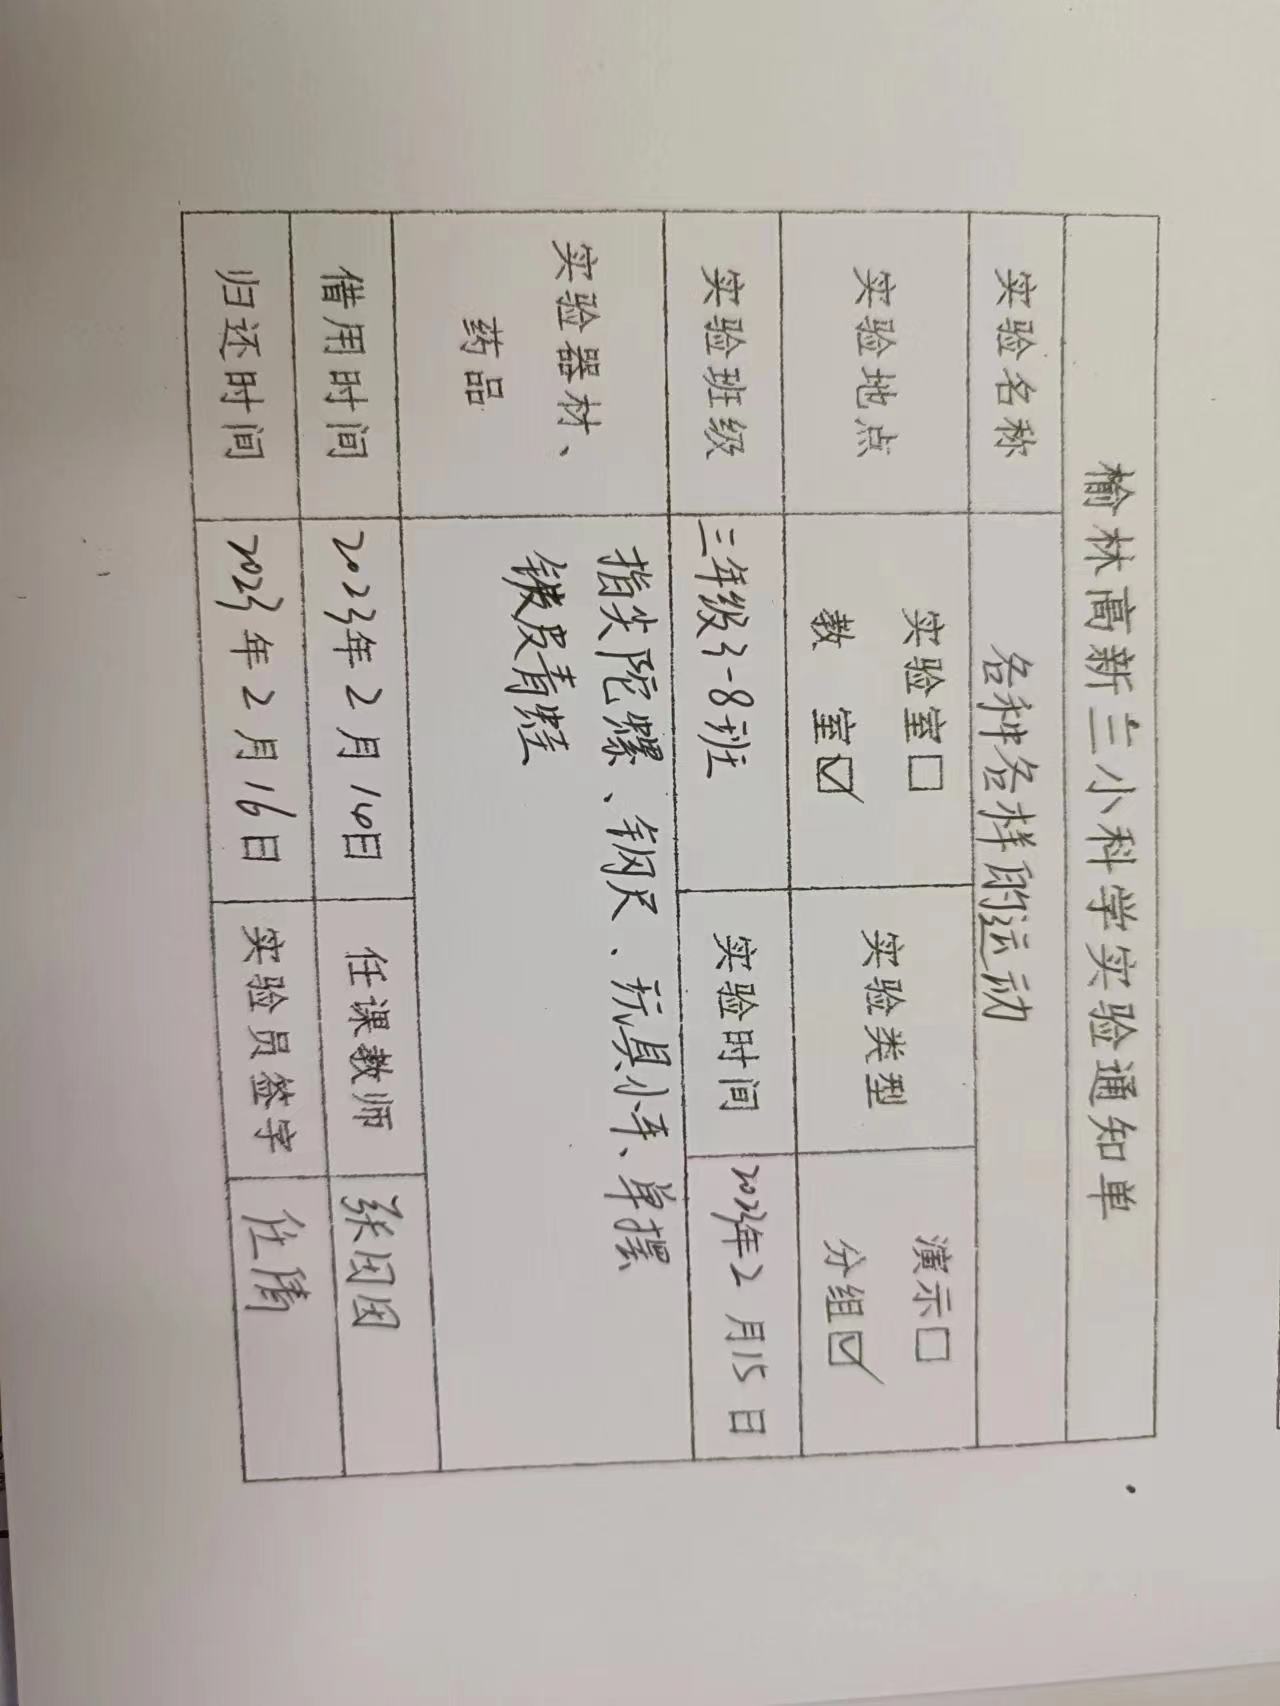 榆林高新三小科学实验通知单
实验名称 各种各样的运动
实验地点 实验室□ 教 室☑ 实验类型 演示□ 分组☑
实验班级 三年级3-8班 实验时间 2023年2月15日
实验器材、药品 指尖陀螺、钢尺、玩具小车、单摆
铁皮青蛙
借用时间 2023年2月14日 任课教师 张团团
归还时间 2023年2月16日 实验员签字 任倩